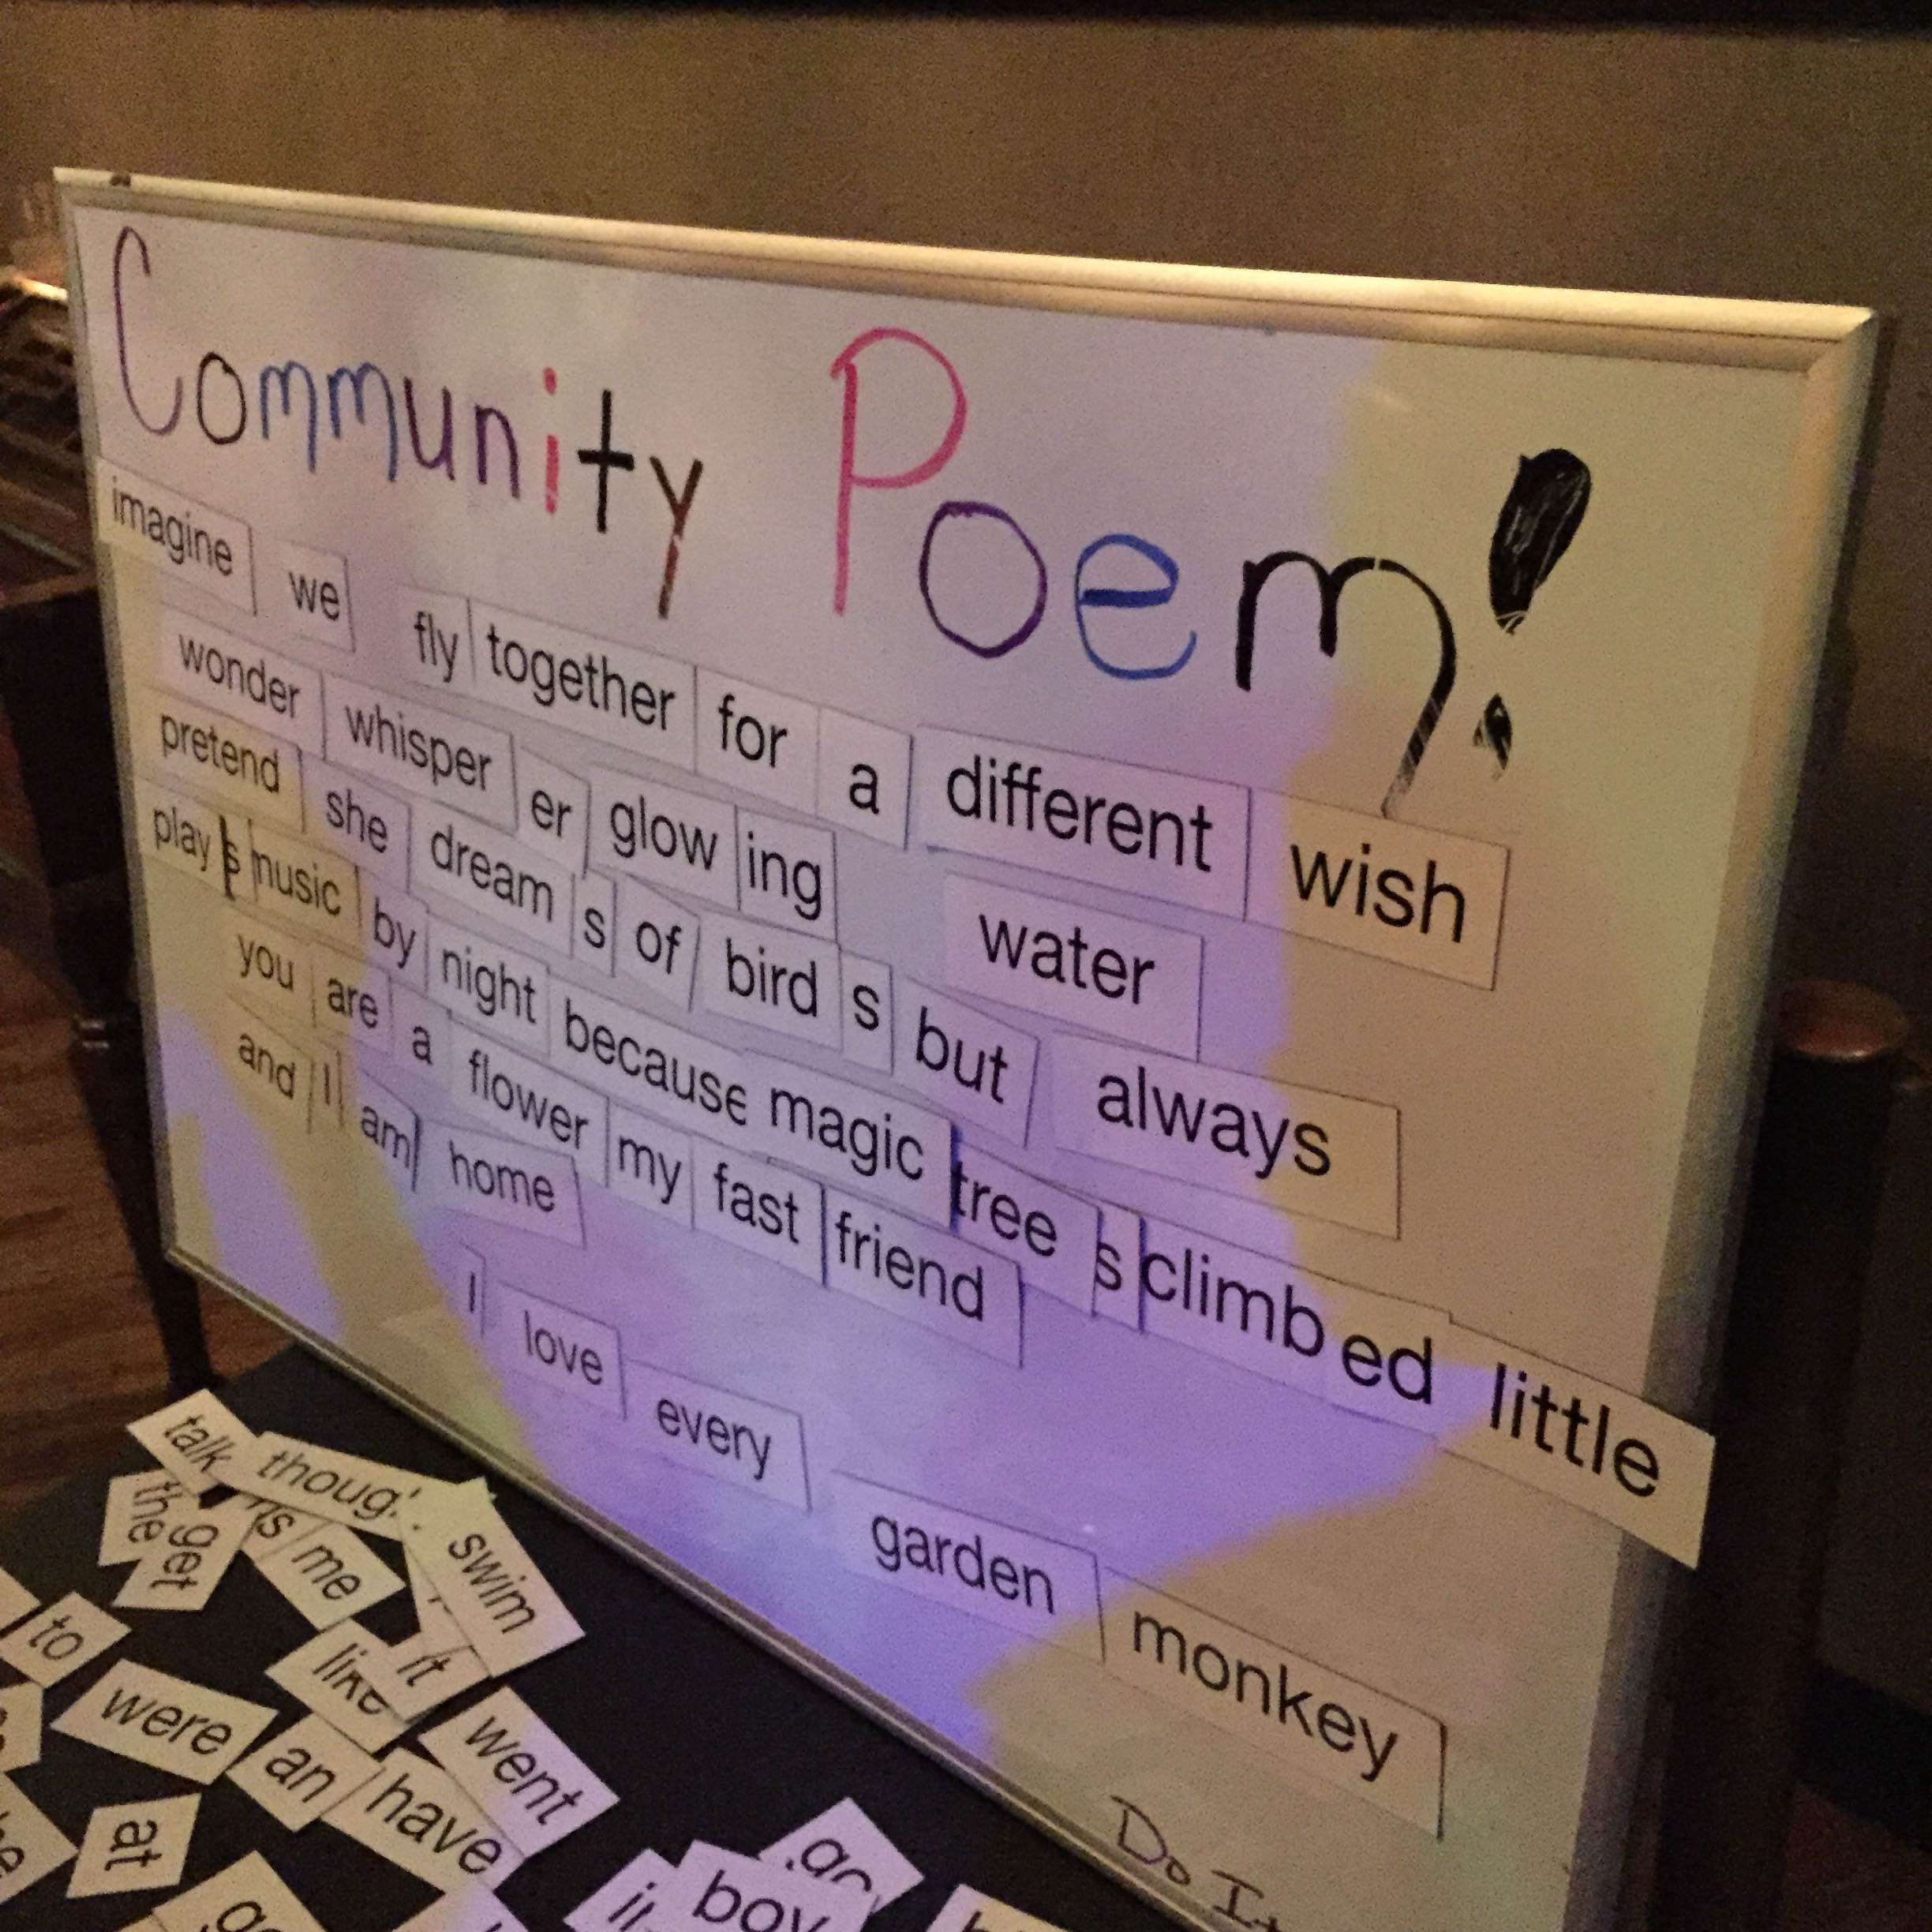 Community Poem!
imagine we fly together for a different wish
wonder whisper er glow ing water
pretend she dream s of bird s but always
play s music by night because magic tree s climb ed little
you are a flower my fast friend
and I am home
I love every garden monkey
Do It
talk
the
get
s me
swim
to
like it
were
an
went
have
at
boy